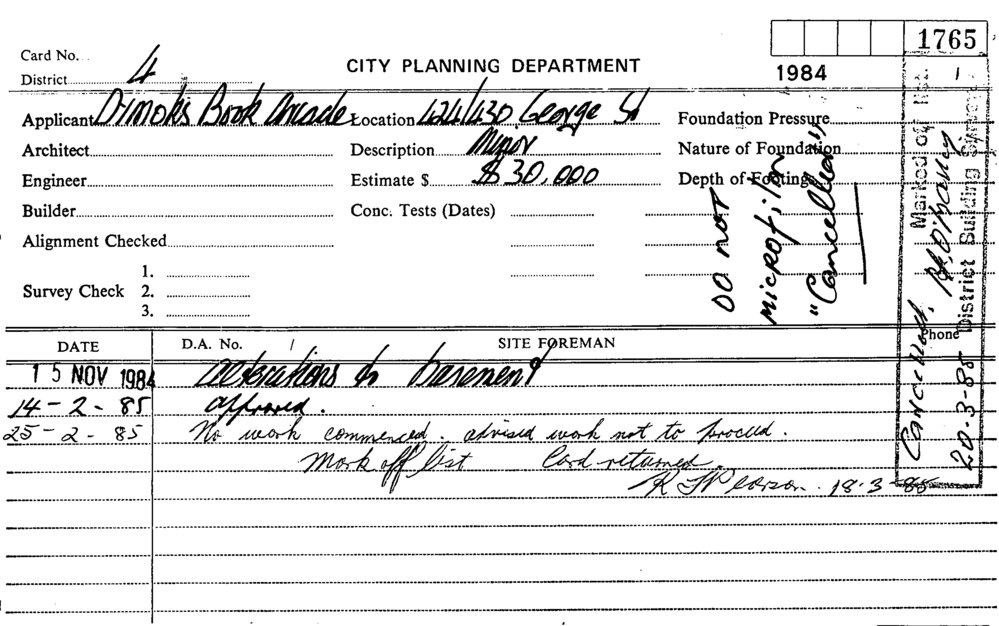 1765
Card No.
District 4
CITY PLANNING DEPARTMENT
1984 1
Applicant Dymoks Book Arcade Location 424/430 George St Foundation Pressure
Architect Description Minor Nature of Foundation
Engineer Estimate $ $30,000 Depth of Footing
Builder Conc. Tests (Dates)
Alignment Checked
1.
Survey Check 2.
3.
DO NOT
MICROFILM
"Cancelled"
Marked off
District Building Surveyor
Cancelled
20-3-85
Phone
DATE D.A. No. / SITE FOREMAN
15 NOV 1984 alterations to basement
14-2-85 approved.
25-2-85 No work commenced. advised work not to proceed.
Mark off list Card returned.
18-3-85